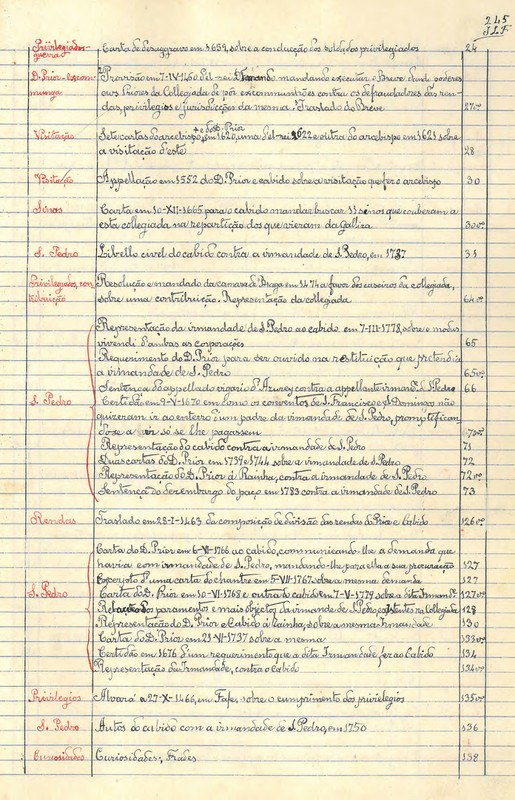 245
J.L.F.
Privilegiados- Carta de desaggravo em 1659, sobre a conducção dos soldados privilegiados 24
guerra
D. Prior - excom- Provisão em 7-IV-1460 d'el-rei D. Fernando mandando executar o Breve dando poderes
munga aos Priores da Collegiada de pôr excommunhões contra os defraudadores das ren-
das, privilegios e jurisdicções da mesma. Traslado do Breve 27vº
+ e do D. Prior
Visitação Sete cartas do arcebispo, em 1620, uma d'el-rei 2622 e outra do arcebispo em 1621 sobre
a visitação d'este 28
Visitação Appellação em 1552 do D. Prior e cabido sobre a visitação que fez o arcebispo 30
Sinos Carta em 10-XII-1665 para o cabido mandar buscar 33 sinos que couberam a
esta collegiada na repartição dos que vieram da Galliza 30vº
S. Pedro Libello civel do cabido contra a irmandade de S. Pedro, em 1737 31
Privilegiados, con- Resolução e mandado da camara de Braga em 1474 a favor dos caseiros da collegiada,
tribuição sobre uma contribuição. Representação da collegiada 64vº
Representação da irmandade de S. Pedro ao cabido, em 7-III-1778, sobre o modus
vivendi d'ambas as corporações 65
Requerimento do D. Prior para ser ouvido na restituição que pretendia
a irmandade de S. Pedro 65vº
Sentença do appellado vigario d'Azurey contra a appellante irmand. de S. Pedro 66
S. Pedro Certidão em 9-V-1670 em como os conventos de S. Francisco e S. Domingos não
quizeram ir ao enterro d'um padre da irmandade de S. Pedro, promptifican-
do-se a ir só se lhe pagassem 70vº
Representação do cabido contra a irmandade de S. Pedro 71
Duas cartas do D. Prior em 1739 e 1744 sobre a irmandade de S. Pedro 72
Representação do D. Prior á Rainha, contra a irmandade de S. Pedro 72vº
Sentença do dezembargo do paço em 1783 contra a irmandade de S. Pedro 73
Rendas Traslado em 28-I-1463 da composição de divisão das rendas do Prior e Cabido 126vº
Carta do D. Prior em 6-VI-1766 ao cabido, communicando-lhe a demanda que
havia com irmandade de S. Pedro, mandando-lhe para ella a sua procuração 127
Excerpto d'uma carta do chantre em 5-VII-1767 sobre a mesma demanda 127
S. Pedro Carta do D. Prior em 10-VI-1768 e outra do cabido em 7-V-1779 sobre a dita Irmand.e 127vº
Relação dos paramentos e mais objectos da irmande de S. Pedro, existentes na Collegiada 128
Representação do D. Prior e Cabido á Rainha, sobre a mesma Irmandade 130
Carta do D. Prior em 23-VI-1737 sobre a mesma 133vº
Certidão em 1676 d'um requerimento que a dita Irmandade fez ao Cabido 134
Representação da Irmandade, contra o Cabido 134vº
Privilegios Alvará a 27-X-1466, em Fafe, sobre o cumprimento dos privielegios 135vº
S. Pedro Autos do cabido com a irmandade de S. Pedro, em 1750 136
Curiosidades Curiosidades; Frades 138